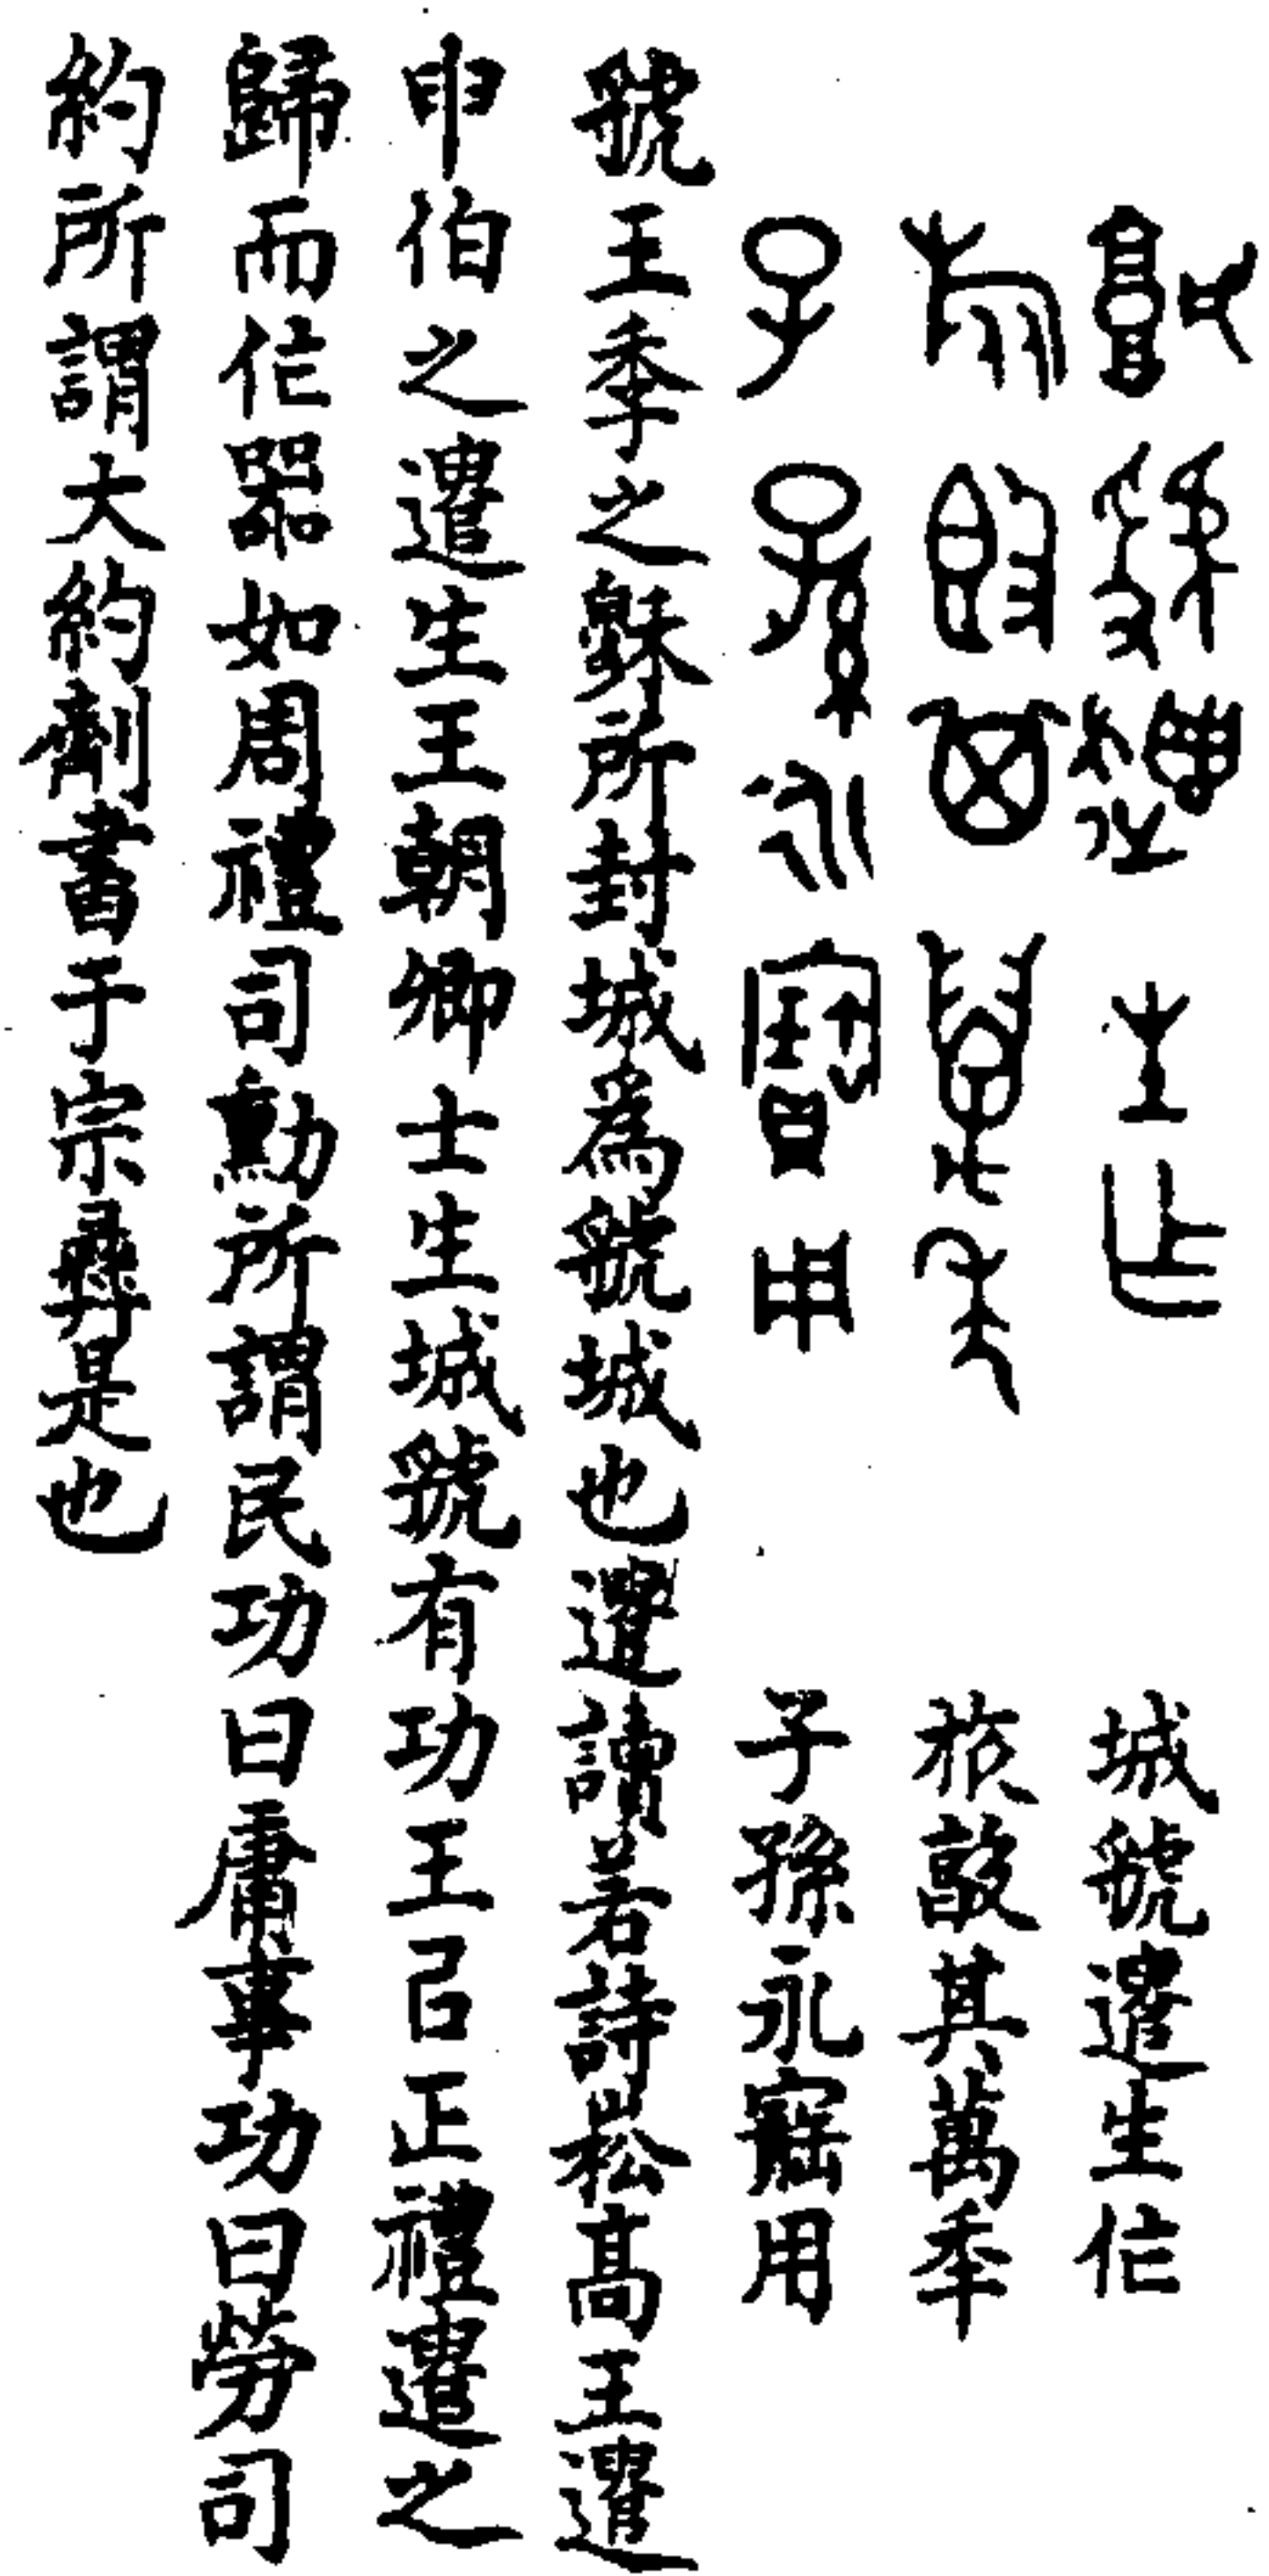 城虢遣生作
旅敦其萬年
子孫永寶用
虢王季之穌所封城為虢城也遣讀若詩崧高王遣
申伯之遣生王朝卿士生城虢有功王㠯正禮遣之
歸而作器如周禮司勳所謂民功曰庸事功曰勞司
約所謂大約劑書于宗彝是也